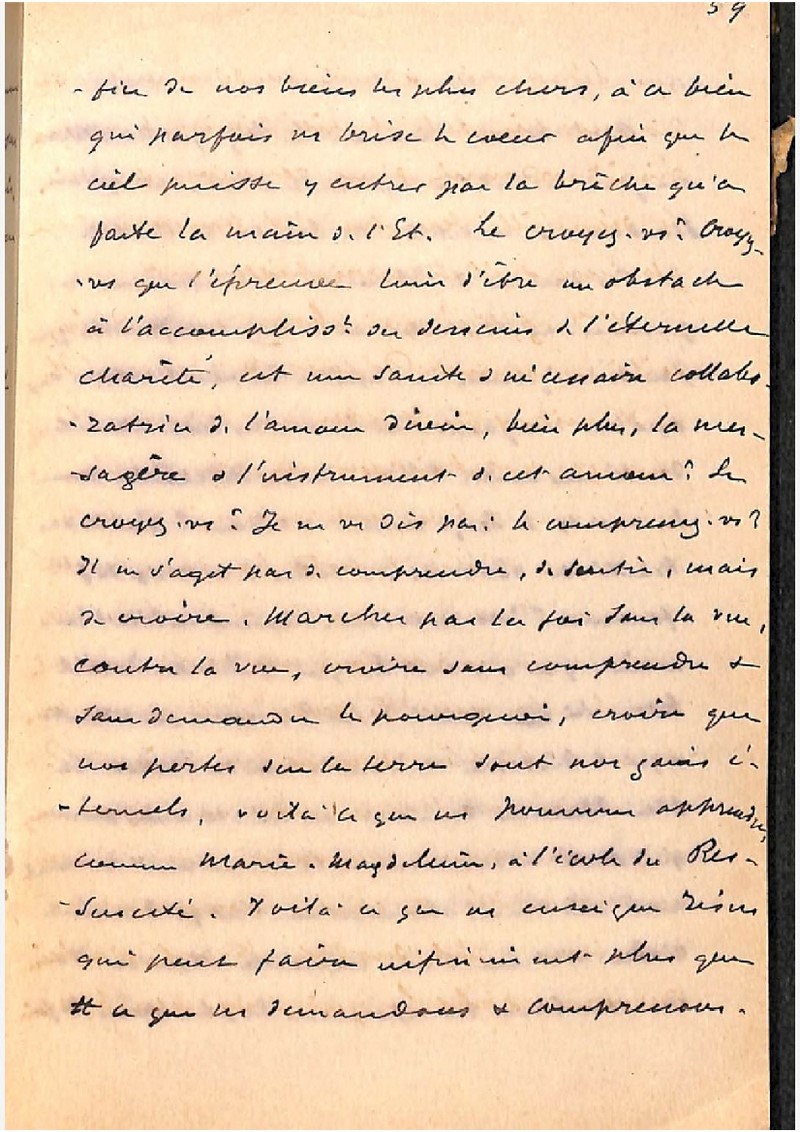 59
-fice de nos biens les plus chers, à ce bien
qui parfois ns brise le coeur afin que le
ciel puisse y entrer par la brèche qu'a
faite la main de l'Et. Le croyez-vs? Croyez-
-vs que l'épreuve loin d'être un obstacle
à l'accompliss^t des desseins de l'éternelle
charité, est une sainte & nécessaire collabo-
-ratrice de l'amour divin, bien plus, la mes-
-sagère & l'instrument de cet amour? Le
croyez-vs? Je ne vs dis pas: le comprenez-vs?
Il ne s'agit pas de comprendre, de sentir, mais
de croire. Marcher par la foi sans la vue,
contre la vue, croire sans comprendre &
sans demander le pourquoi, croire que
nos pertes sur la terre sont nos gains é-
-ternels, voilà ce que ns pouvons apprendre,
comme Marie-Magdeleine, à l'école du Res-
-suscité. Voilà ce que ns enseigne Jésus
qui peut faire infiniment plus que
ce que ns demandons & comprenons.